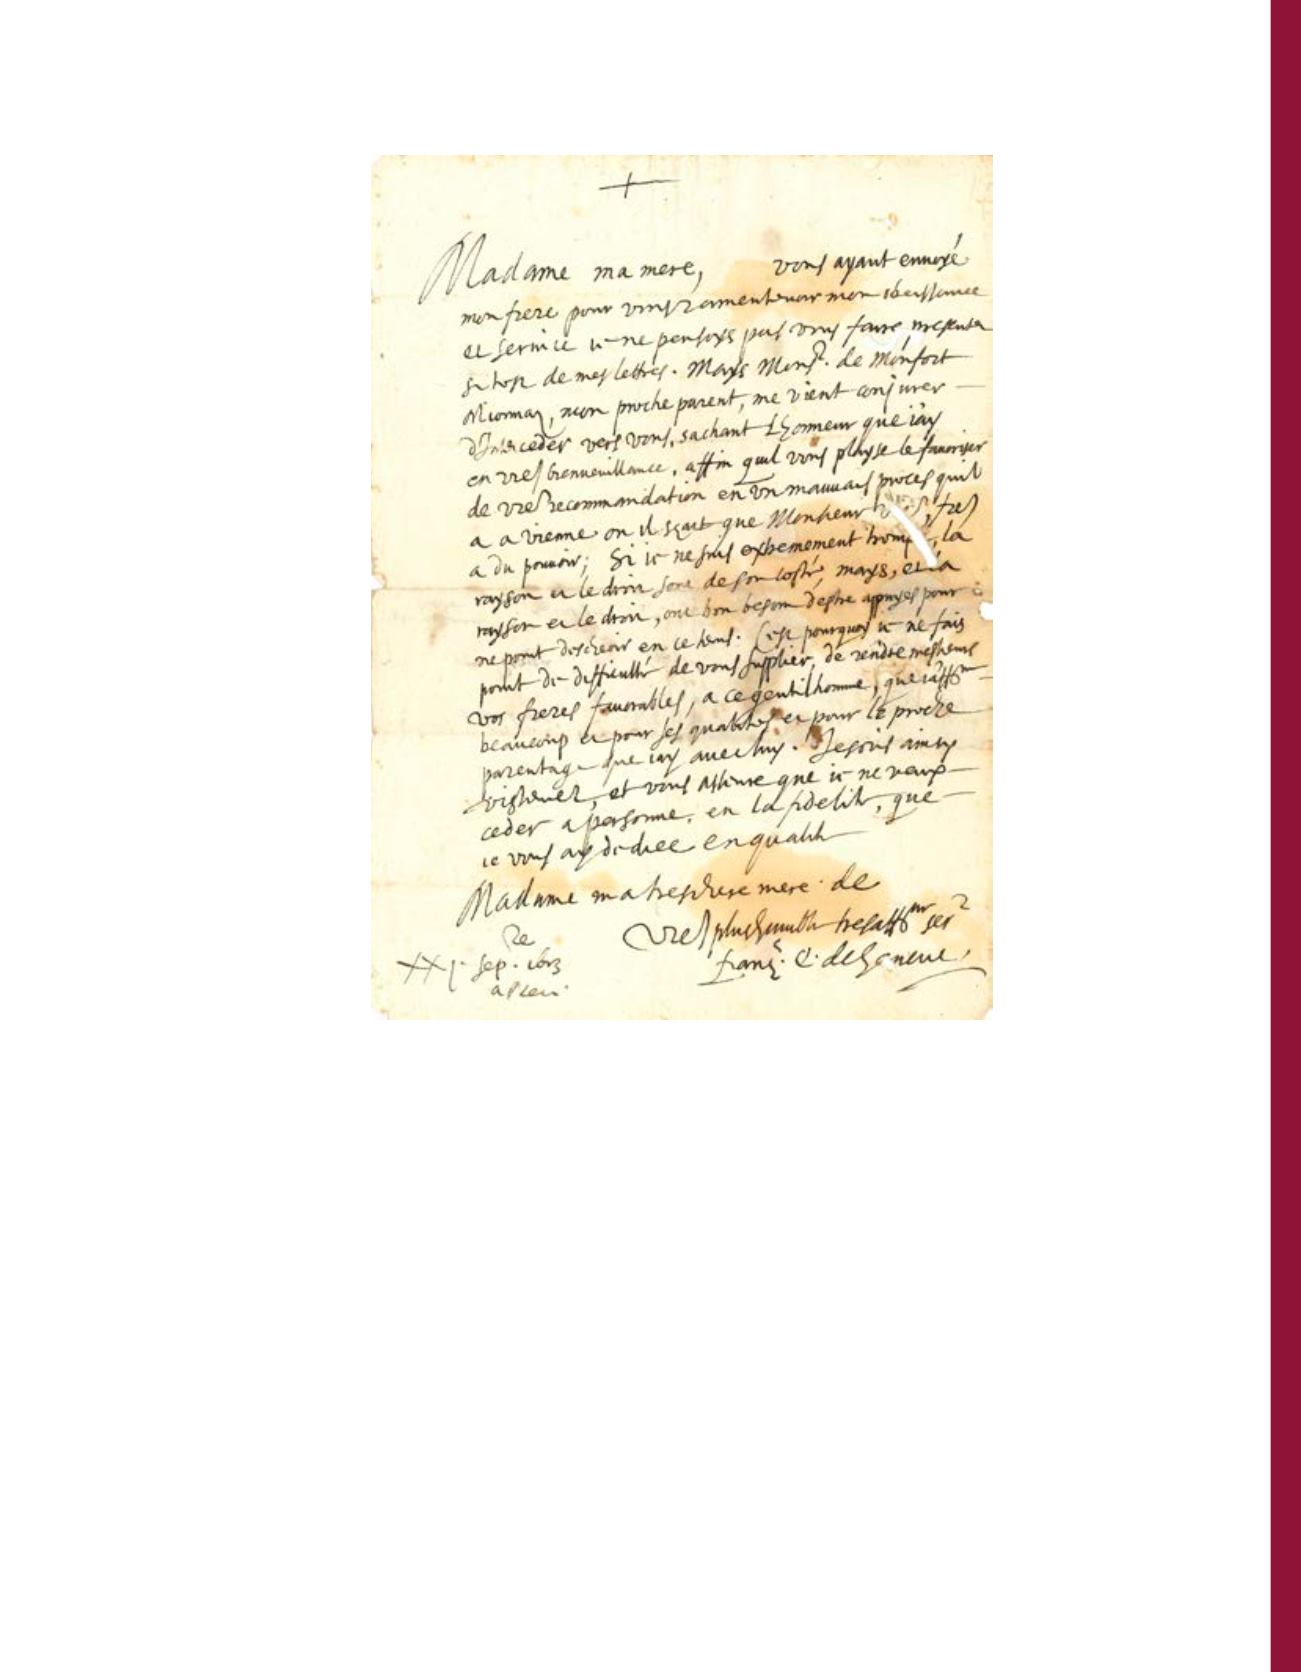 Madame ma mere, vous ayant envoyé
mon frere pour vous ramentevoir mon obeissance
et service ie ne pensoys pas vous faire presenter
si tost de mes lettres. Mays Monsr. de Monfort
Mionnaz, mon proche parent, me vient conjurer
d'Interceder vers vous, sachant L'honneur que i'ay
en vre bienveuillance, affin quil vous playse le favoriser
de vre recommandation en un mauvais proces quil
a a vienne ou il sçait que Monsieur
a du pouvoir; Si ie ne suis extremement trompé, la
rayson et le droit sont de son costé, mays, et la
rayson et le droit, ont bon besoin d'estre appuyés pour
ne point descheoir en ce tems. C'est pourquoy ie ne fais
point de difficulté de vous supplier, de rendre messieurs
vos freres favorables, a ce gentilhomme, que i'aff^nne
beaucoup et pour ses qualités et pour le proche
parentage que iay avec luy. Je suis
et vous asseure que ie ne veux
ceder a personne, en la fidelité, que
ie vous ay dediee en qualité
Madame ma treschere mere de
Vre plus humble tresaff^nné ser^r
Françs. E. de Geneve,
XXI. sep. 1613